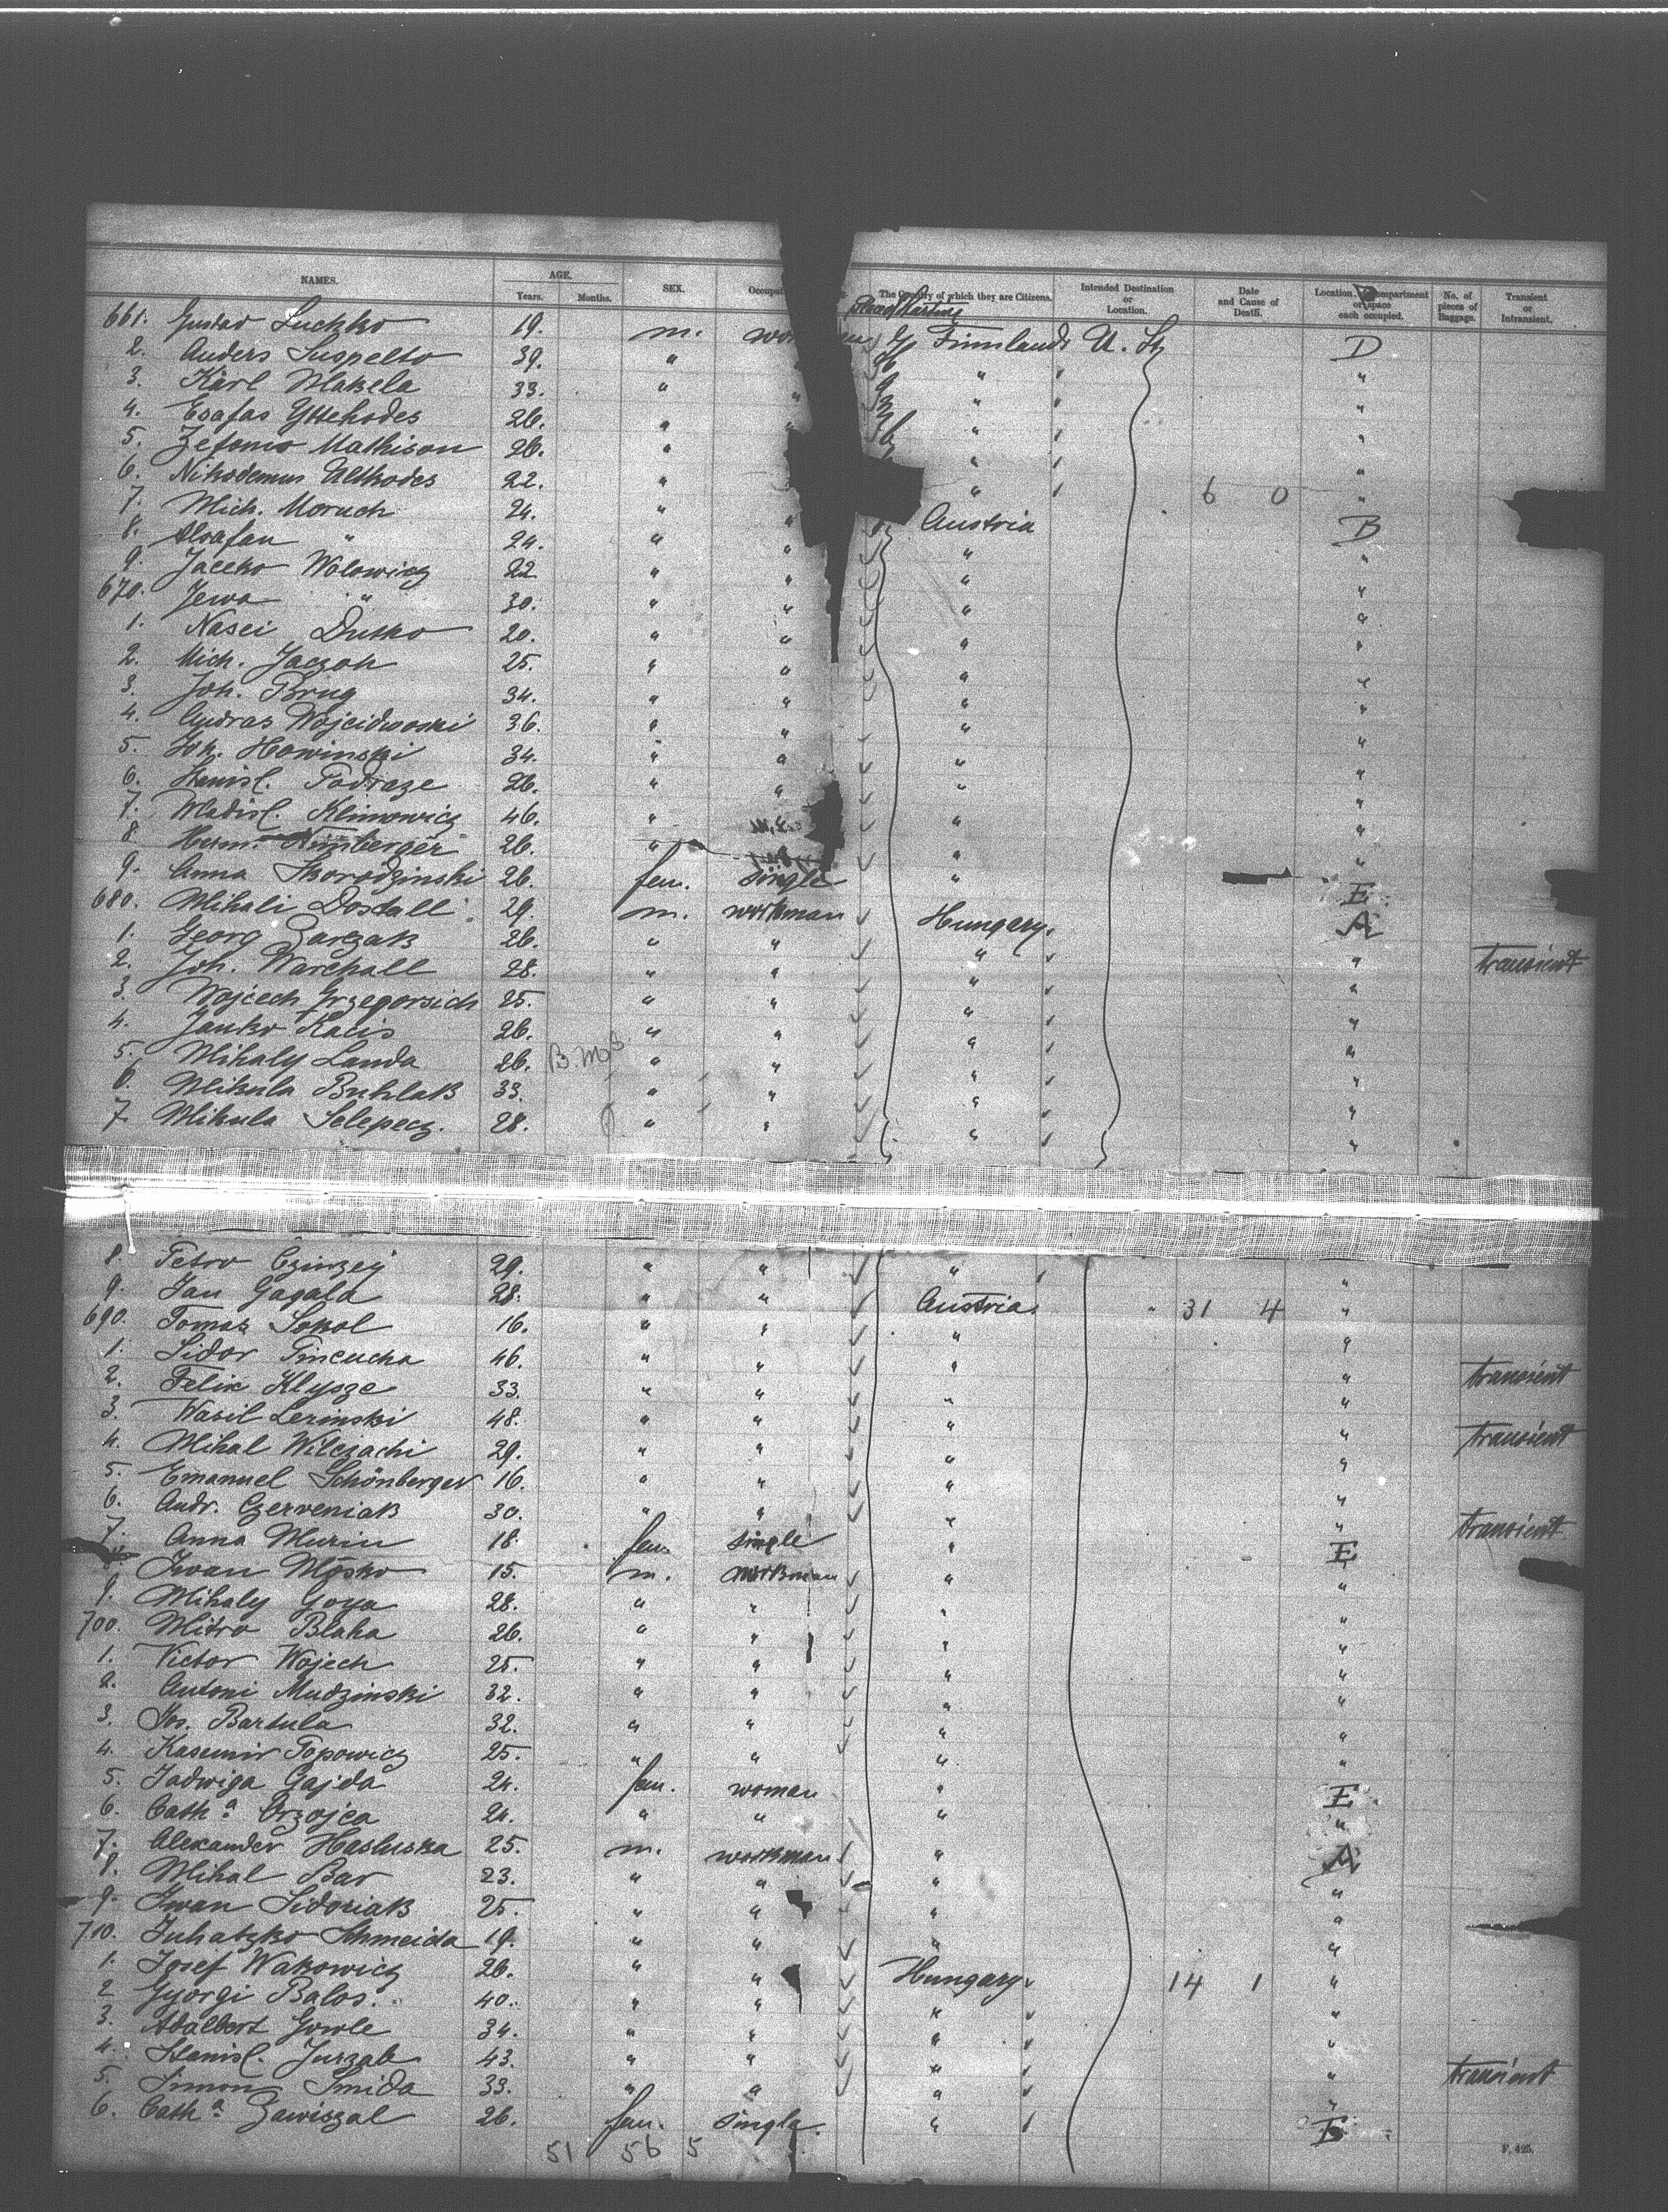 NAMES. AGE. Years. Months. SEX. The Country of which they are Citizens. Intended Destination or Location. Date and Cause of Death. Location. Compartment or space each occupied. No. of pieces of Baggage. Transient or Intransient.
661. Gustav Luckko 19. m. Finnland U. St. D
2. Anders Luspelto 39. " " "
3. Karl Makela 33. " " " "
4. Esafas 26. " " " "
5. Mathison 26. " " "
6. Nikodemus 22. " " 6 0 "
7. Mich. Moruch 24. " " Austria B
8. " 24. " " " "
9. Jacko Wolowicz 22 " " " "
670. Jewa " 30. " " " "
1. Nasei Dutko 20. " " " "
2. Mich. Jaczoh 25. " " " "
3. Joh. Brug 34. " " " "
4. Andras 36. " " " "
5. Joh. Howinski 34. " " " "
6. Stanisl. Podraze 26. " " " "
7. Wladisl. Klimowicz 46. " " "
8. Herm. 26. " " "
9. Anna Skorodzinski 26. fem. single " E
680. Mihali Dostall 29. m. workman Hungary. A
1. Georg Zarzak 26. " " " " transient
2. Joh. Warchall 28. " " " "
3. Wojcech Grzegorsich 25. " " " "
4. Janko Kacis 26. " " " "
5. Mihaly Landa 26. " " " "
6. Mikula Buhlak 33. " " " "
7. Mikula Selepecz. 28. " " " "
8. Petro Czurzey 29. " " " "
9. Jan Gagala 28. " " Austria. 31 4 "
690. Tomas Sokol 16. " " " "
1. Sidor Pincucha 46. " " " " transient
2. Felix Klysze 33. " " " "
3. Wasil Lerinski 48. " " " " transient
4. Mihal Wilczachi 29. " " " "
5. Emanuel Schönberger 16. " " " "
6. Andr. Czerveniak 30. " " " " transient
7. Anna Murin 18. fem. single " E
Iwan Mosko 15. m. workman " "
9. Mihaly Goya 28. " " " "
700. Mitro Blaha 26. " " " "
1. Victor Wojech 25. " " " "
2. Antoni Mudzinski 32. " " " "
3. Jos. Bartula 32. " " " "
4. Kasemir Popowicz 25. " " " "
5. Jadwiga Gajda 24. fem. woman " E
6. Cath.a Orzojca 24. " " " "
7. Alexander Hasluska 25. m. workman " A
8. Mihal Bar 23. " " " "
9. Iwan Sidoriak 25. " " " "
710. Juhatzko Schmeida 19. " " " "
1. Josef Wakowicz 26. " " Hungary. 14 1 "
2 Gyorgi Balos. 40. " " " "
3. Adalbert Gowle 34. " " " "
4. Stanisl. Jurzak 43. " " " " transient
5. Simon Smida 33. " " " "
6. Cath.a Zawiszal 26. fem. single. " E
51 56 5
F. 425.